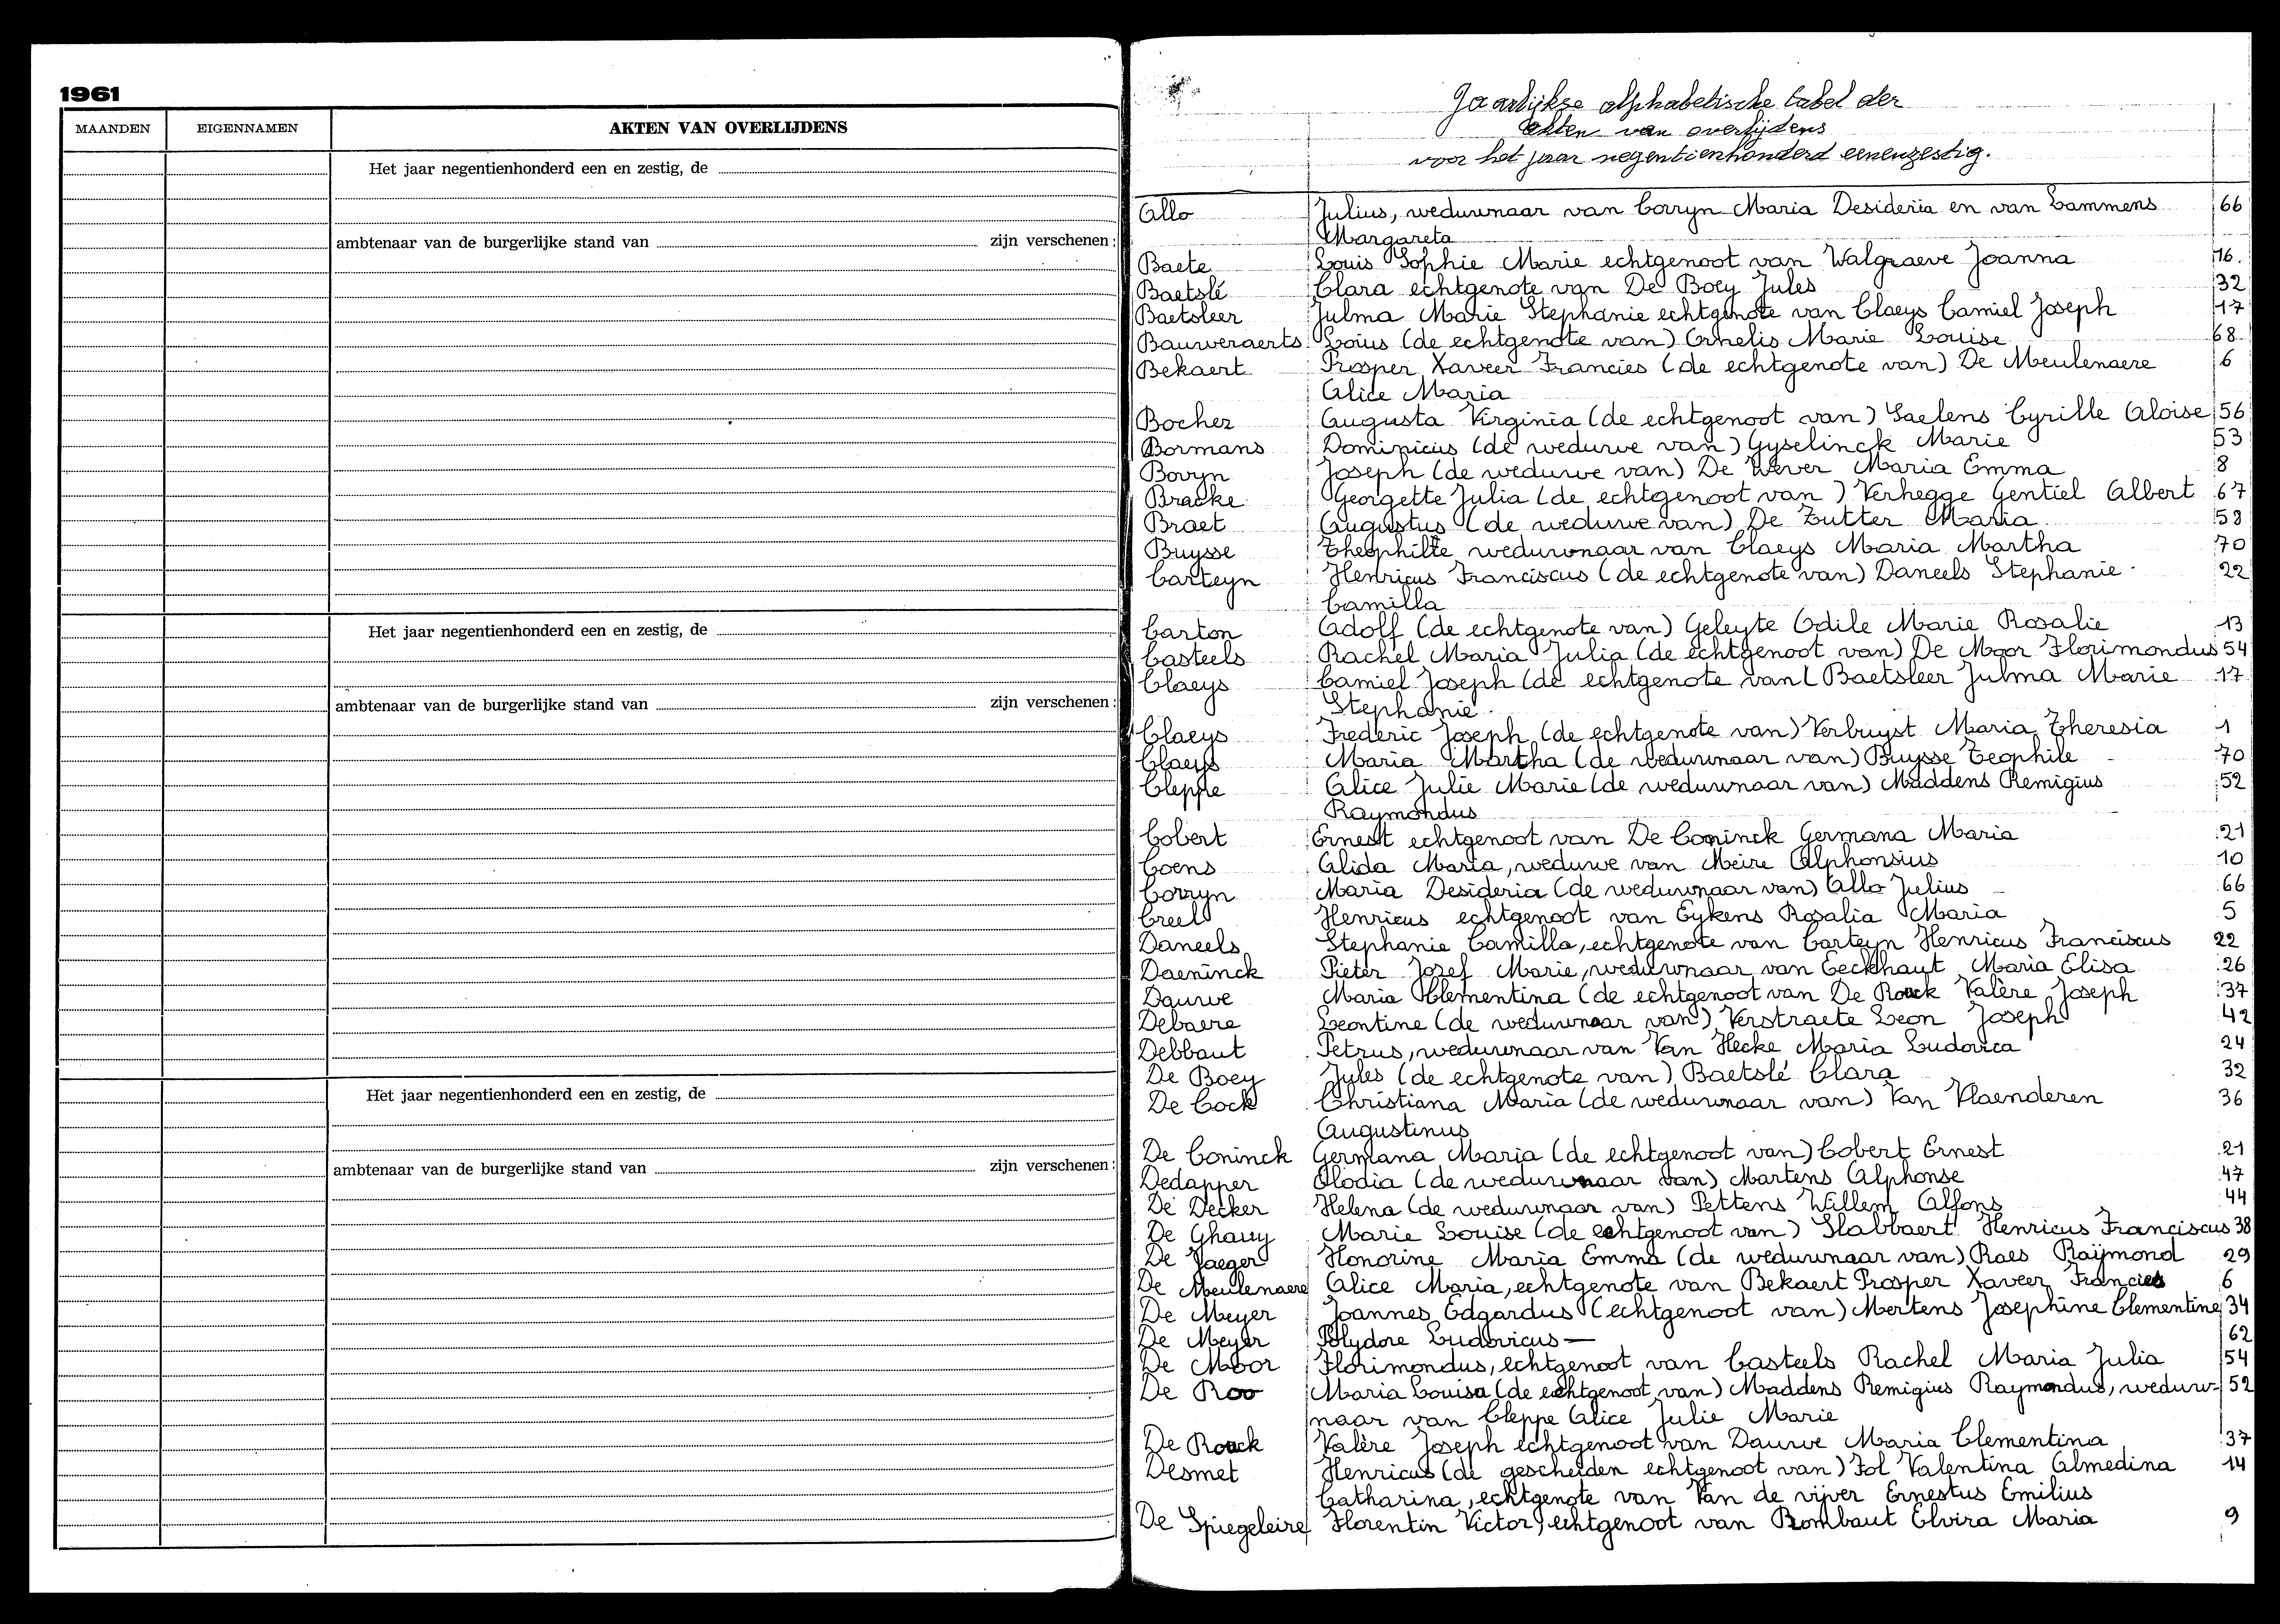 1961
MAANDEN EIGENNAMEN AKTEN VAN OVERLIJDENS
Het jaar negentienhonderd een en zestig, de
ambtenaar van de burgerlijke stand van zijn verschenen:
Het jaar negentienhonderd een en zestig, de
ambtenaar van de burgerlijke stand van zijn verschenen:
Het jaar negentienhonderd een en zestig, de
ambtenaar van de burgerlijke stand van zijn verschenen:
Jaarlijkse alphabetische tabel der
akten van overlijdens
voor het jaar negentienhonderd eenenzestig.
Allo Julius, weduwnaar van Corryn Maria Desideria en van Lammens 66
Margareta
Baete Louis Sophie Marie echtgenoot van Walgraeve Joanna 16.
Baetslé Clara echtgenote van De Boey Jules 32
Baetsleer Julma Marie Stephanie echtgenote van Claeys Camiel Joseph 17
Bauweraerts Loius (de echtgenote van) Cornelis Marie Louise 68
Bekaert Prosper Xaveer Francies (de echtgenote van) De Meulenaere 6
Alice Maria
Bocher Augusta Virginia (de echtgenoot van) Saelens Cyrille Aloise 56
Bormans Dominicus (de weduwe van) Gyselinck Marie 53
Bovyn Joseph (de weduwe van) De Wever Maria Emma 8
Bracke Georgette Julia (de echtgenoot van) Verhegge Gentiel Albert 67
Braet Augustus (de weduwe van) De Zutter Maria 58
Buysse Theophille weduwnaar van Claeys Maria Martha 70
Carteyn Henricus Franciscus (de echtgenote van) Daneels Stephanie 22
Camilla
Carton Adolf (de echtgenote van) Geleyte Odile Marie Rosalie 13
Casteels Rachel Maria Julia (de echtgenoot van) De Moor Florimondus 54
Claeys Camiel Joseph (de echtgenote van( Baetsleer Julma Marie 17
Stephanie
Claeys Frederic Joseph (de echtgenote van) Verbuyst Maria Theresia 1
Claeys Maria Martha (de weduwnaar van) Buysse Teophile 70
Cleppe Alice Julie Marie (de weduwnaar van) Maddens Remigius 52
Raymondus
Cobert Ernest echtgenoot van De Coninck Germana Maria 21
Coens Alida Maria, weduwe van Meire Alphonsius 10
Corryn Maria Desideria (de weduwnaar van) Allo Julius 66
Creel Henricus echtgenoot van Eykens Rosalia Maria 5
Daneels Stephanie Camilla, echtgenote van Carteyn Henricus Franciscus 22
Daeninck Pieter Jozef Marie, weduwnaar van Eeckhaut Maria Elisa 26
Dauwe Maria Clementina (de echtgenoot van De Rouck Valère Joseph 37
Debaere Leontine (de weduwnaar van) Verstraete Leon Joseph 42
Debbaut Petrus, weduwnaar van Van Hecke Maria Ludovica 24
De Boey Jules (de echtgenote van) Baetslé Clara 32
De Cock Christiana Maria (de weduwnaar van) Van Vlaenderen 36
Augustinus
De Coninck Germana Maria (de echtgenoot van) Cobert Ernest 21
Dedapper Elodia (de weduwnaar van) Martens Alphonse 47
De Decker Helena (de weduwnaar van) Pettens Willem Alfons 44
De Ghauy Marie Louise (de echtgenoot van) Slabbaert Henricus Franciscus 38
De Jaeger Honorine Maria Emma (de weduwnaar van) Raes Raymond 29
De Meulenaere Alice Maria, echtgenote van Bekaert Prosper Xaveer Francies 6
De Meyer Joannes Edgardus (echtgenoot van) Mertens Josephine Clementine 34
De Meyer Polydore Ludovicus — 62
De Moor Florimondus, echtgenoot van Casteels Rachel Maria Julia 54
De Roo Maria Louisa (de echtgenoot van) Maddens Remigius Raymondus, weduw- 52
naar van Cleppe Alice Julie Marie
De Rouck Valère Joseph echtgenoot van Dauwe Maria Clementina 37
Desmet Henricus (de gescheiden echtgenoot van) Fol Valentina Almedina 14
Catharina, echtgenote van Van de vijver Ernestus Emilius
De Spiegeleire Florentin Victor, echtgenoot van Rombaut Elvira Maria 9